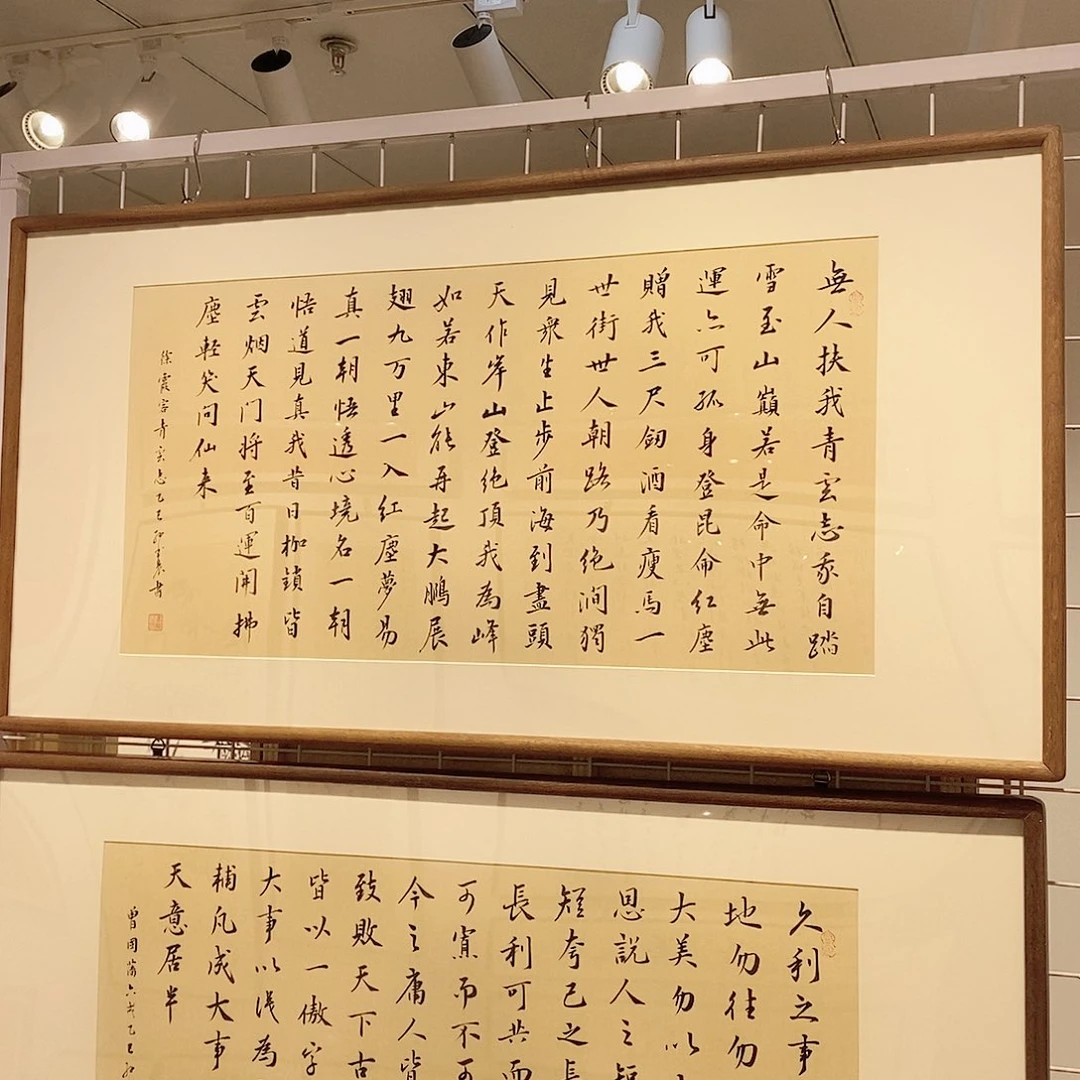 無人扶我青雲志我自踏
雪至山巔若是命中無此
運亦可孤身登昆侖紅塵
贈我三尺劒酒看瘦馬一
世街世人朝路乃絕澗獨
見衆生止步前海到盡頭
天作岸山登絕頂我為峰
如若東山能再起大鵬展
翅九万里一入紅塵夢易
真一朝悟透心境名一朝
悟道見真我昔日枷鎖皆
雲烟天门將至百運開拂
塵輕笑问仙来
徐霞客青雲志乙巳書
久利之事
地勿往勿
大美勿以
思説人之短
短夸己之長
長利可共而
可黨而不可
今之庸人皆
致敗天下古
皆以一傲字
大事以淺為
輔凡成大事
天意居半
曾國藩六戒乙巳